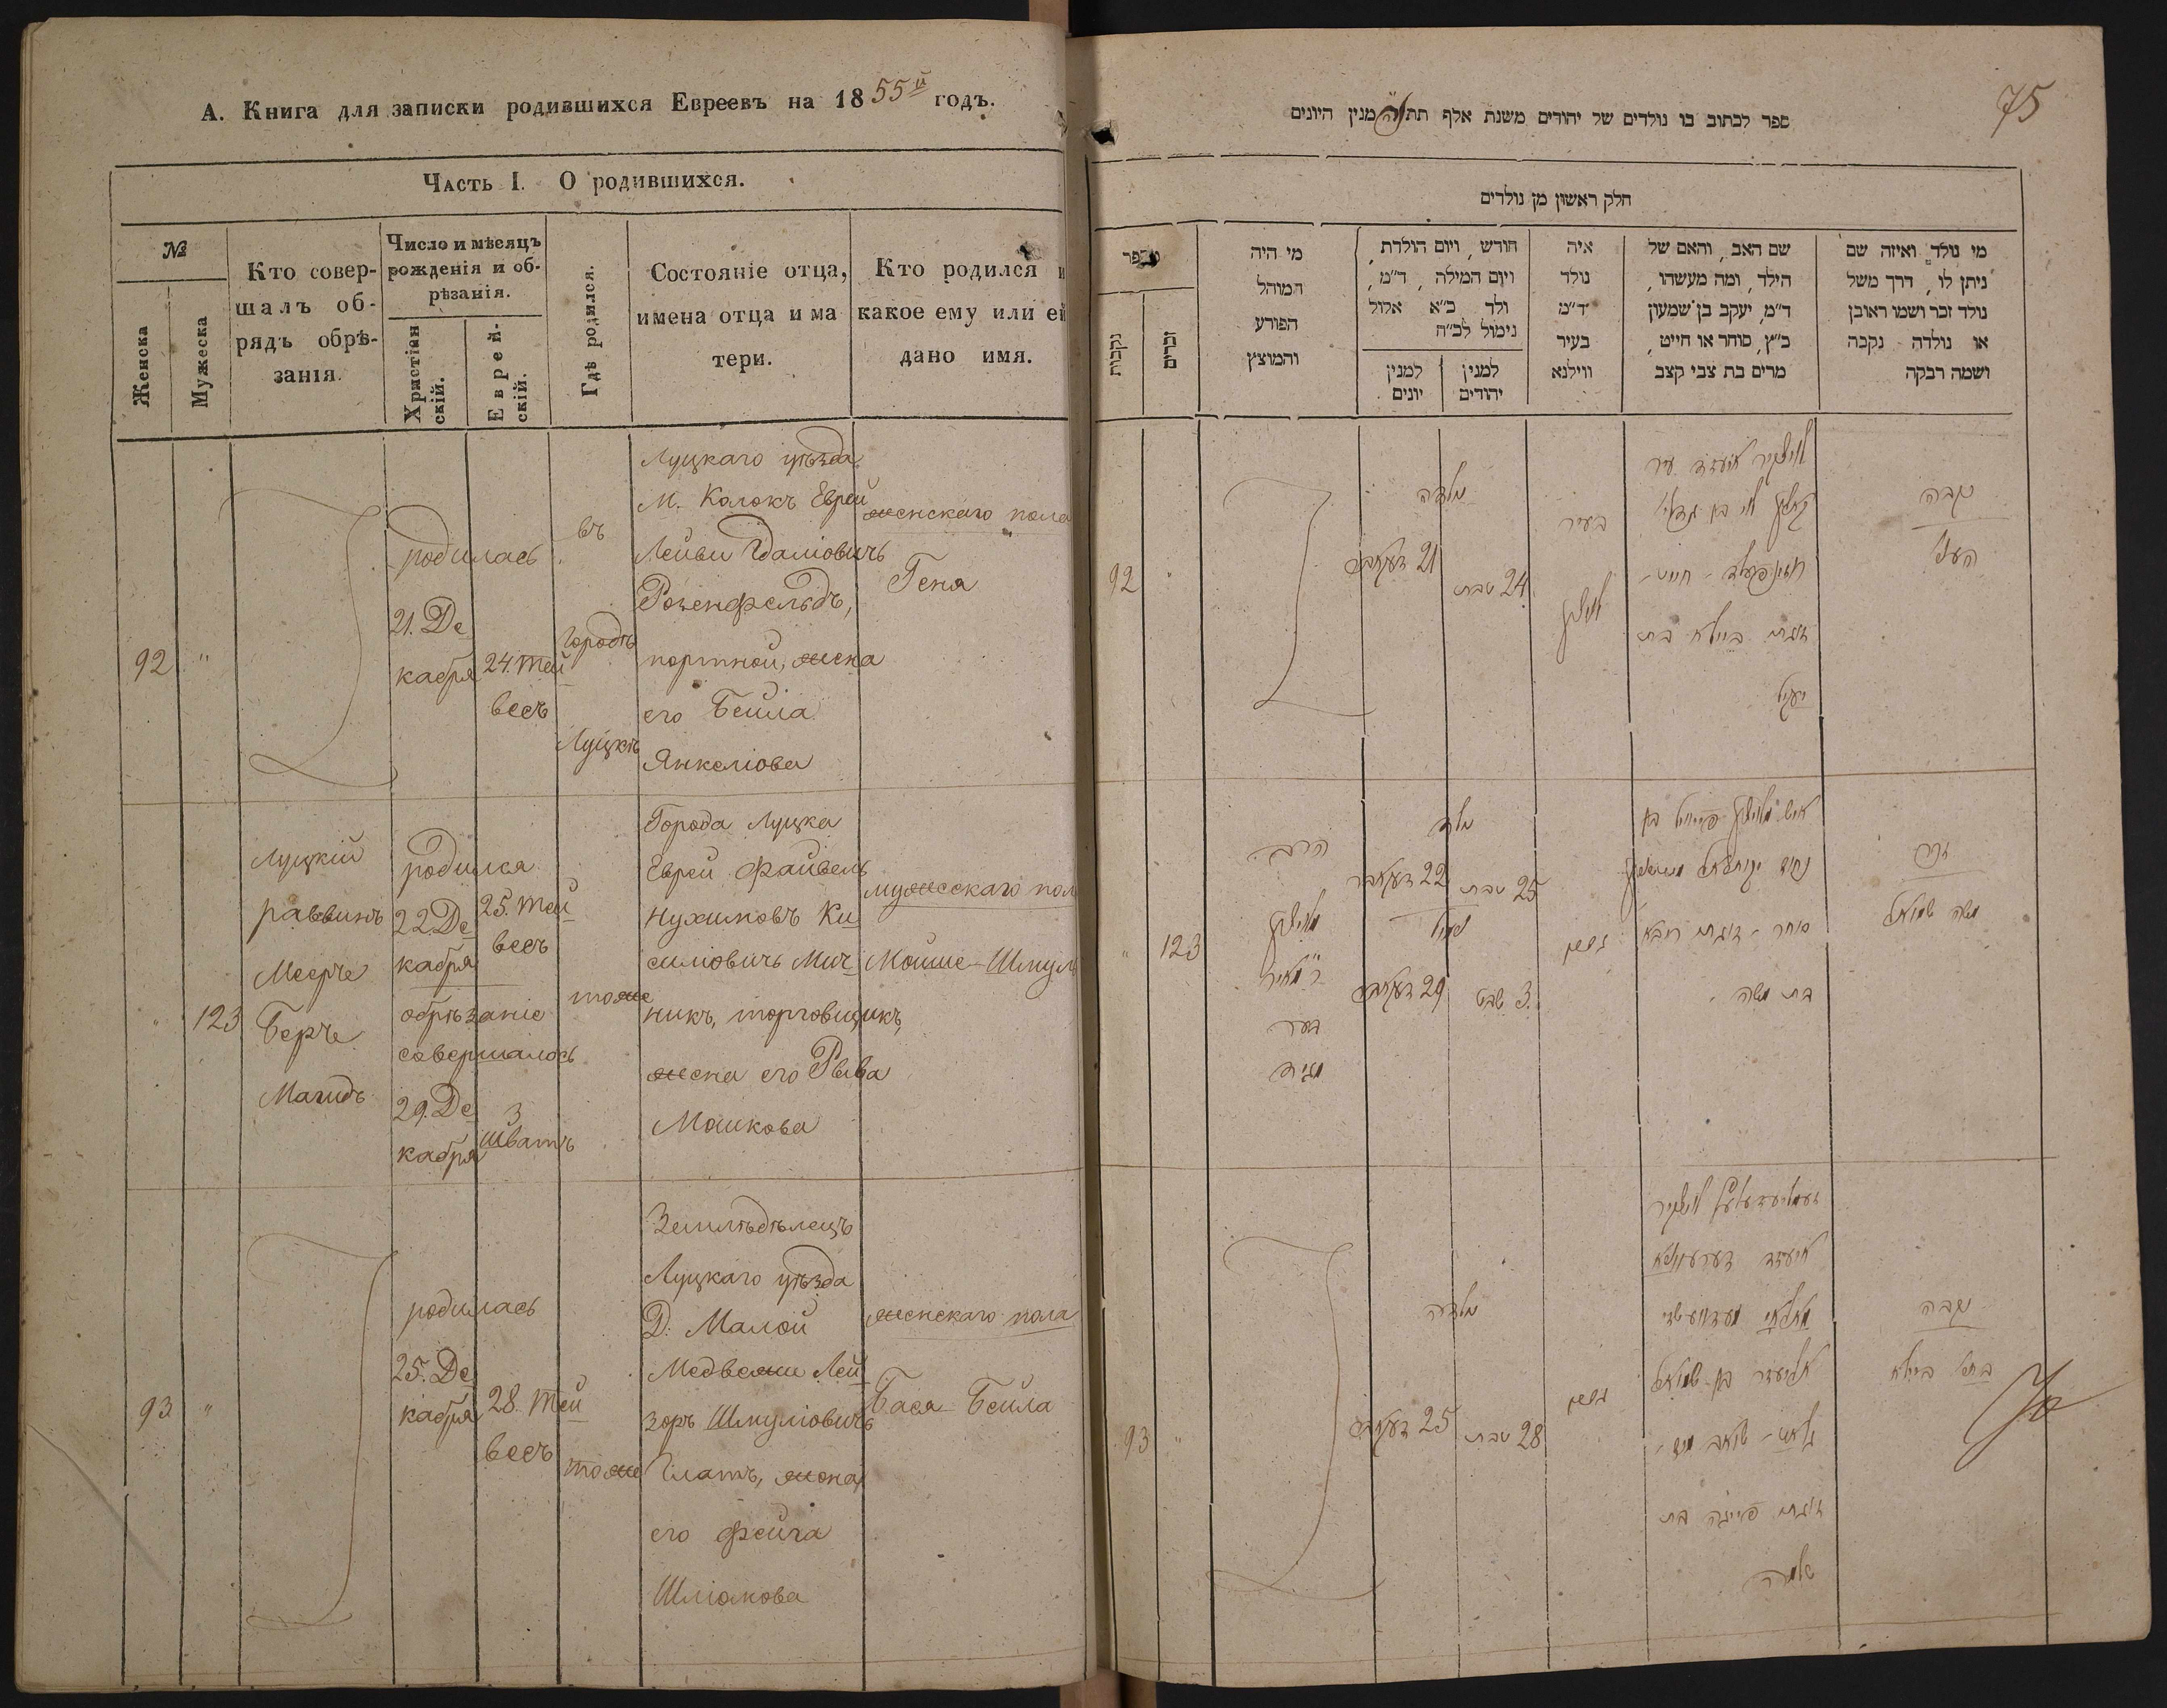 А. Книга для записки родившихся Евреевъ на 1855й годъ.
Часть I. О родившихся.
№
Женска
Мужеска
Кто совер-
шалъ об-
рядъ обрѣ-
занія.
Число и мѣсяцъ
рожденія и об-
рѣзанія.
Христіан
скій.
Еврей-
скій.
Гдѣ родился.
Состояніе отца,
имена отца и ма
тери.
Кто родился и
какое ему или ей
дано имя.
92
"
родилась
21. Де
кабря
24. Тей
весъ
въ
городѣ
Луцкѣ
Луцкаго уѣзда
М. Колокъ Еврей
Лейви Гдаліовичъ
Розенфельдъ,
портной, жена
его Бейла
Янкеліова
женскаго пола
Геня
"
123
Луцкій
раввинъ
Меерче
Берче
Магидъ
родился
22 Де
кабря
обрѣзаніе
совершалось
29. Де
кабря
25. Тей
весъ
3
Шватъ
тоже
Города Луцка
Еврей Файвель
Нухимовъ Ки
силіовичъ Мич
никъ, торговщикъ,
жена его Рыва
Мошкова
мужескаго пол
Мойше-Шмуль
93
"
родилась
25. Де
кабря
28. Тей
весъ
тоже
Землѣдѣлецъ
Луцкаго уѣзда
Д. Малой
Медвежи Лей
зоръ Шмуліовичъ
Глатъ, жона
его Фейга
Шліомова
женскаго пола
Бася Бейла
75
ספר לכתוב בו נולדים של יהודים משנת אלף תתנ"ה מנין היונים
חלק ראשון מן נולדים
מי נולד ואיזה שם
ניתן לו, דרך משל
נולד זכר ושמו ראובן
או נולדה נקבה
ושמה רבקה
שם האב, והאם של
הילד, ומה מעשהו,
ד"מ, יעקב בן שמעון
כ"ץ, סוחר או חייט,
מרים בת צבי קצב
איה
נולד
ד"מ
בעיר
ווילנא
חודש, ויום הולדת,
ויום המילה, ד"מ,
ילד כ"א אלול
נימול לכ"ח
למנין
יהודים
למנין
יונים
מי היה
המוהל
הפורע
והמוצץ
מספר
זכרים
נקבות
נקבה
לוי בן גדלי'
חייט
זוגתו ביילא בת
בעיר
נולדה
24 טבת
21 דעקאבר
92
זכר
משה שמואל
סוחר - זוגתו ריבא
בת משה
נולד
25 טבת
22 דעקאבר
3 שבט
29 דעקאבר
הרב
ר' מאיר
בער
מגיד
123
"
נקבה
ביילא
אליעזר בן שמואל
זוגתו פייגה בת
שלמה
נולדה
28 טבת
25 דעקאבר
"
93